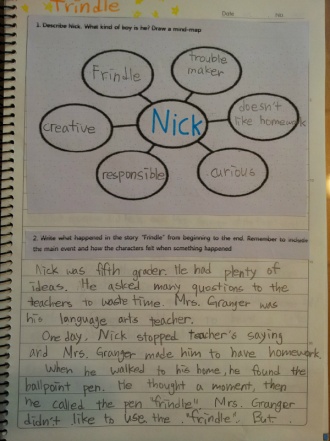 Frindle
Date No
1. Describe Nick. What kind of boy is he? Draw a mind-map
Frindle
trouble
maker
creative
Nick
doesn't
like homework
responsible
curious
2. Write what happened in the story "Frindle" from beginning to the end. Remember to include
the main event and how the characters felt when something happened
Nick was fifth grader. He had plenty of
ideas. He asked many questions to the
teachers to waste time. Mrs. Granger was
his language arts teacher.
One day, Nick stopped teacher's saying
and Mrs. Granger made him to have homework.
When he walked to his home, he found the
ballpoint pen. He thought a moment, then
he called the pen "frindle". Mrs. Granger
didn't like to use the "frindle". But